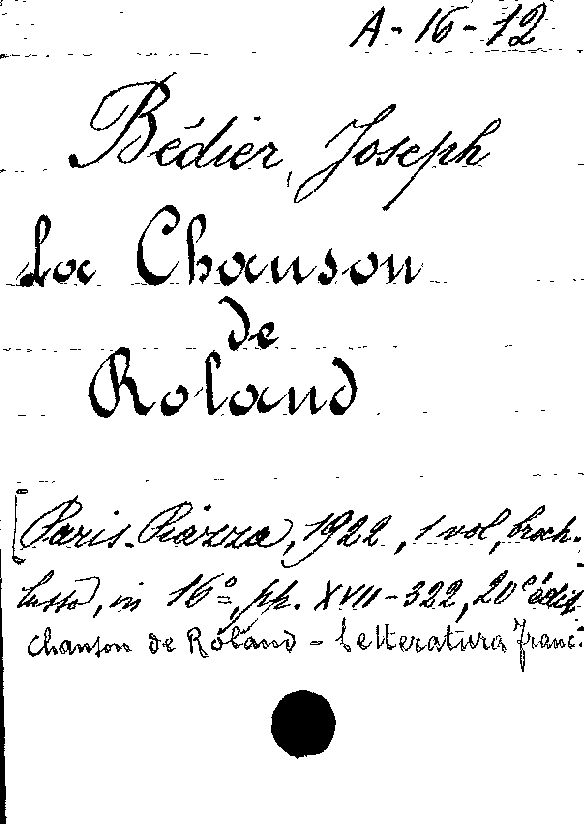 A-16-12
Bédier, Joseph
La Chanson
de
Roland
[Paris-Piazza, 1922, 1 vol, broch.
lusso, in 16º, pp. XVII-322, 20ª édit.
Chanson de Roland - Letteratura franc.